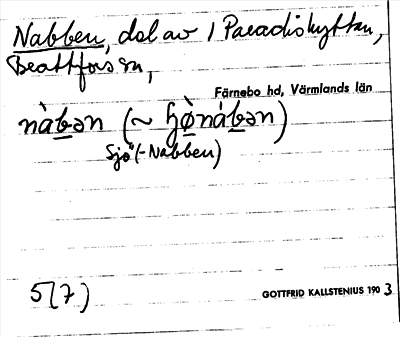 Nabben, del av 1 Paradishyttan,
Brattforsen,
Färnebo hd, Värmlands län
nàbən (~ ɧø̀nábən)
Sjö(-Nabben)
5(7)
GOTTFRID KALLSTENIUS 1903